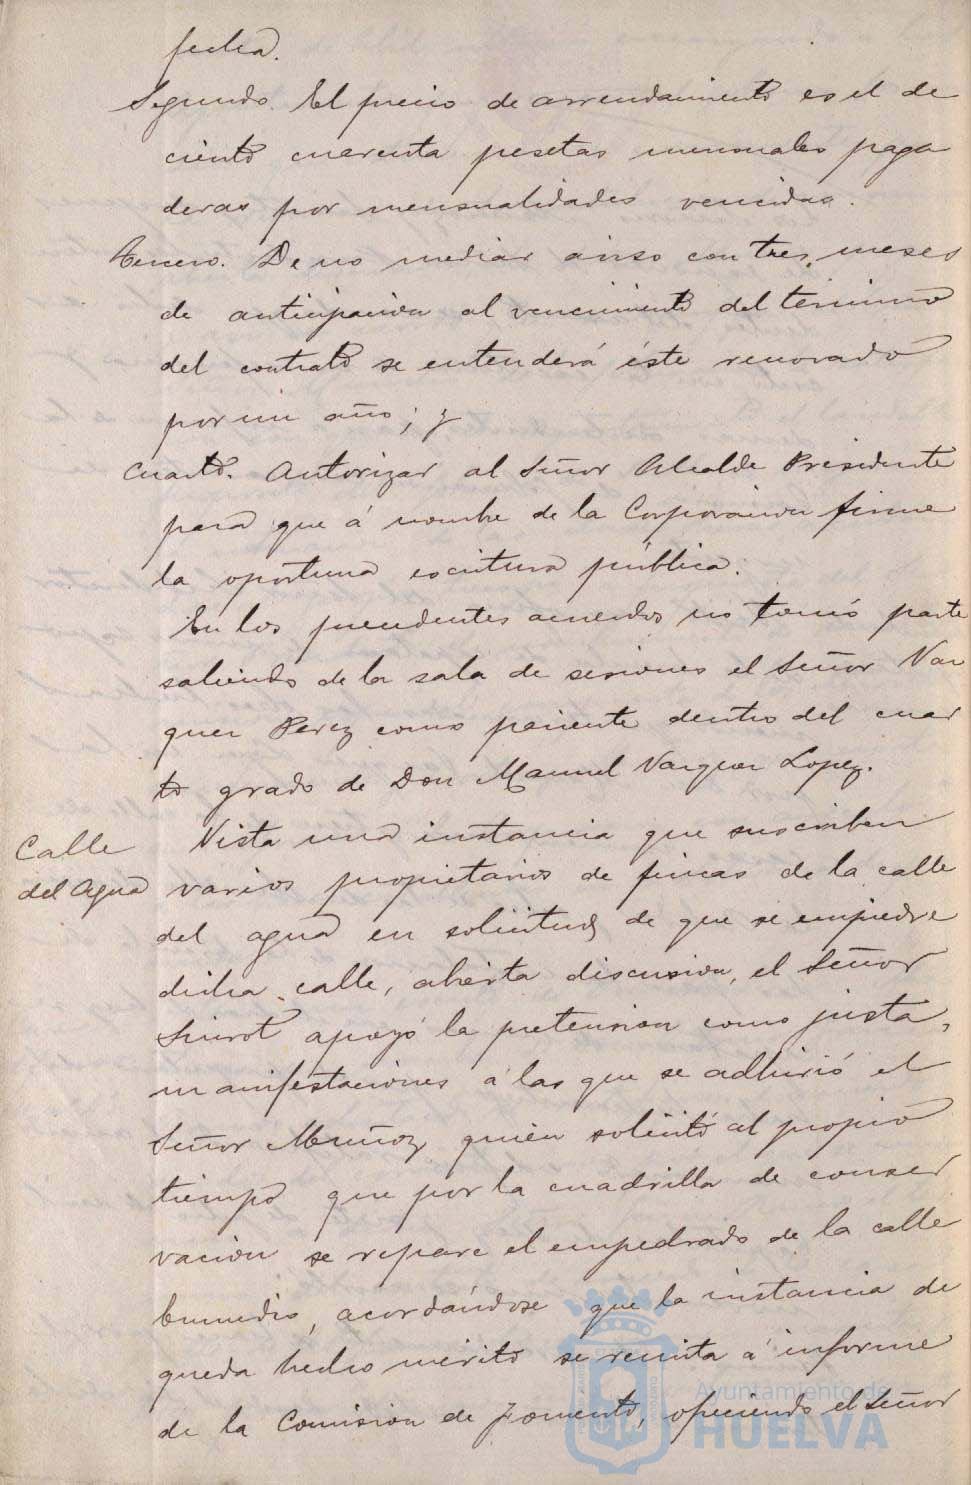 fecha.
Segundo. El precio de arrendamiento es el de
ciento cuarenta pesetas mensuales paga
deras por mensualidades vencidas.
Tercero. De no mediar aviso con tres meses
de anticipacion al vencimiento del término
del contrato se entenderá éste renovado
por un año; y
Cuarto. Autorizar al Señor Alcalde Presidente
para que á nombre de la Corporacion firme
la oportuna escritura pública.
En los precedentes acuerdos no tomó parte
saliendo de la sala de sesiones el Señor Vaz
quez Perez como pariente dentro del cuar
to grado de Don Manuel Vazquez Lopez.
Calle
del Agua
Vista una instancia que suscriben
varios propietarios de fincas de la calle
del agua en solicitud de que se empiedre
dicha calle, abierta discusion, el Señor
Siurot apoyó la pretension como justa,
manifestaciones á las que se adhirió el
Señor Muñoz quien solicitó al propio
tiempo que por la cuadrilla de conser
vacion se repare el empedrado de la calle
Enmedio, acordándose que la instancia de
queda hecho mérito se remita á informe
de la Comision de Fomento, ofreciendo el Señor
Ayuntamiento de
HUELVA